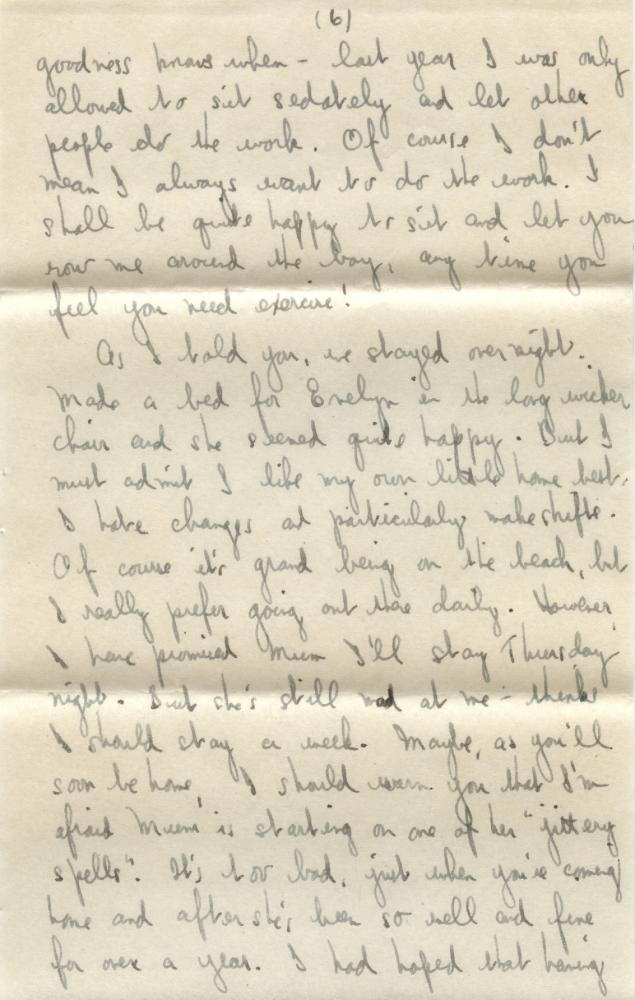 (6)
goodness knows when - last year I was only
allowed to sit sedately and let other
people do the work. Of course I don't
mean I always want to do the work. I
shall be quite happy to sit and let you
row me around the bay, any time you
feel you need exercise!
As I told you, we stayed overnight.
Made a bed for Evelyn in the long wicker
chair and she seemed quite happy. But I
must admit I like my own little home best.
I hate changes and particularly makeshifts.
Of course it's grand being on the beach, but
I really prefer going out there daily. However
I have promised Mum I'll stay Thursday
night. But she's still mad at me - thinks
I should stay a week. Maybe, as you'll
soon be home, I should warn you that I'm
afraid Mum is starting on one of her "jittery
spells". It's too bad, just when you're coming
home and after she's been so well and fine
for over a year. I had hoped that having